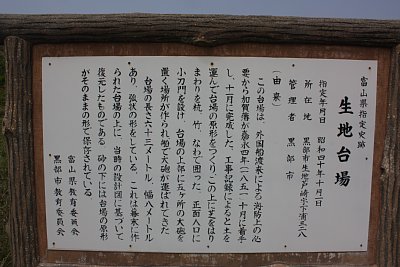 富山県指定史跡
生地台場
指定年月日 昭和四十年十月一日
所在地 黒部市生地芦崎字下浦
管理者 黒部市
(由来)
この台場は、外国船渡来による海防上の必
要から加賀藩が嘉永四年(一八五一)十月に着手
し、十一月に完成した。工事記録によると土を
運んで台場の原形をつくり、この上に芝をはり
まわりを杭、竹、なわで囲った。正面入口に
小刀門を設け、台場の上部に五ヶ所の大砲を
置く場所が作られ、旬で大砲が運ばれてきた。
台場の長さ六十三メートル 幅八メートル
あり、弧状の形をしている。これは幕末に作
られた台場の上に、当時の設計図に基づいて
復元したものである。砂の下には台場の原形
がそのままの形で保存されている。
富山県教育委員会
黒部市教育委員会